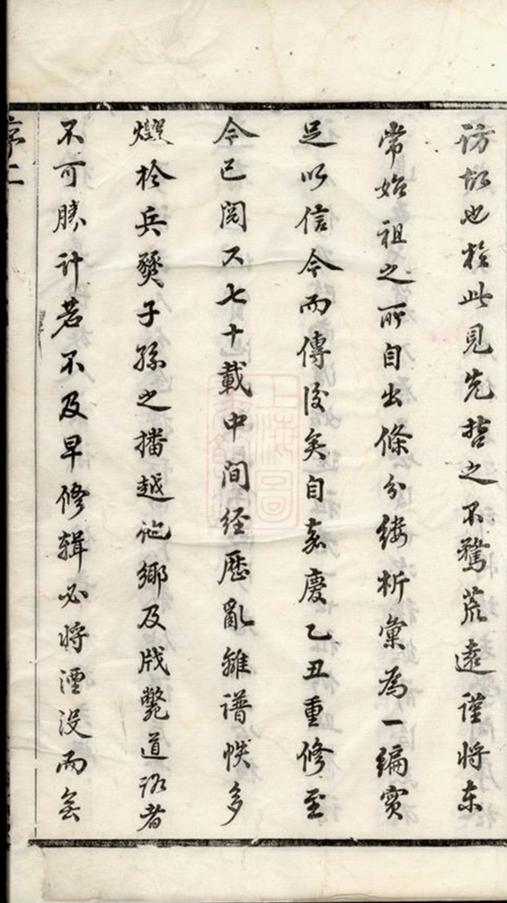 訪故也於此見先哲之不騖荒遠謹將东
常始祖之所自出條分縷析彙為一編實
足以信今而傳後矣自嘉慶乙丑重修至
今已閲六七十載中间经歷亂離谱帙多
燬於兵燹子孫之播越他鄉及戕斃道路者
不可勝计若不及早修辑必将湮没而無
序二
上海圖